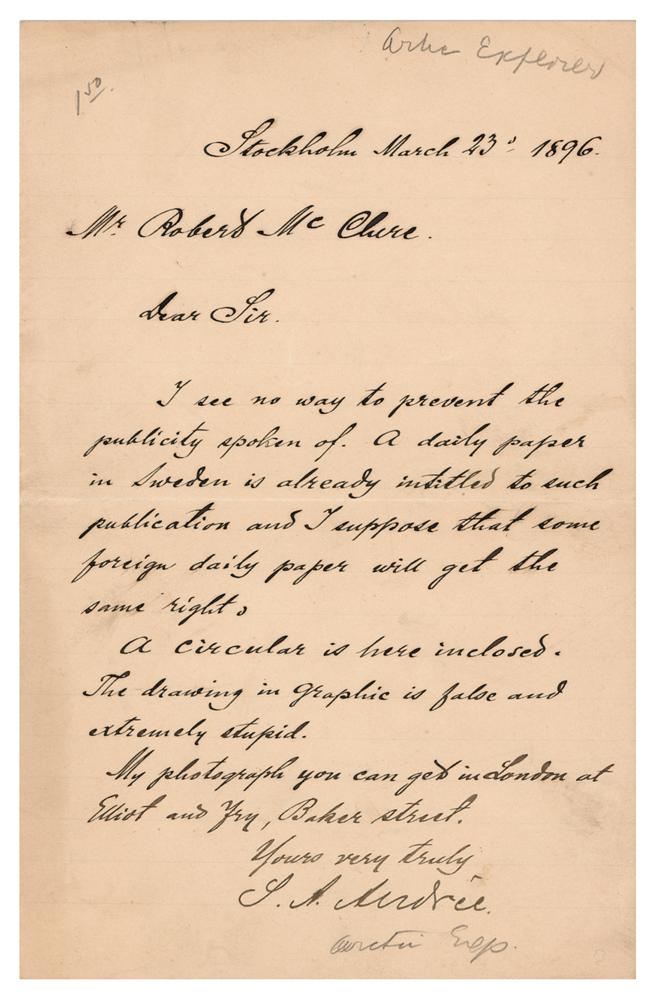 Artic Explorer
1 50.
Stockholm March 23d. 1896.
Mr. Robert Mc Clure.
Dear Sir.
I see no way to prevent the
publicity spoken of. A daily paper
in Sweden is already intitled to such
publication and I suppose that some
foreign daily paper will get the
same right.
A circular is here inclosed.
The drawing in Graphic is false and
extremely stupid.
My photograph you can get in London at
Elliot and Fry, Baker street.
Yours very truly
S. A. Andrée.
Arctic Exp.